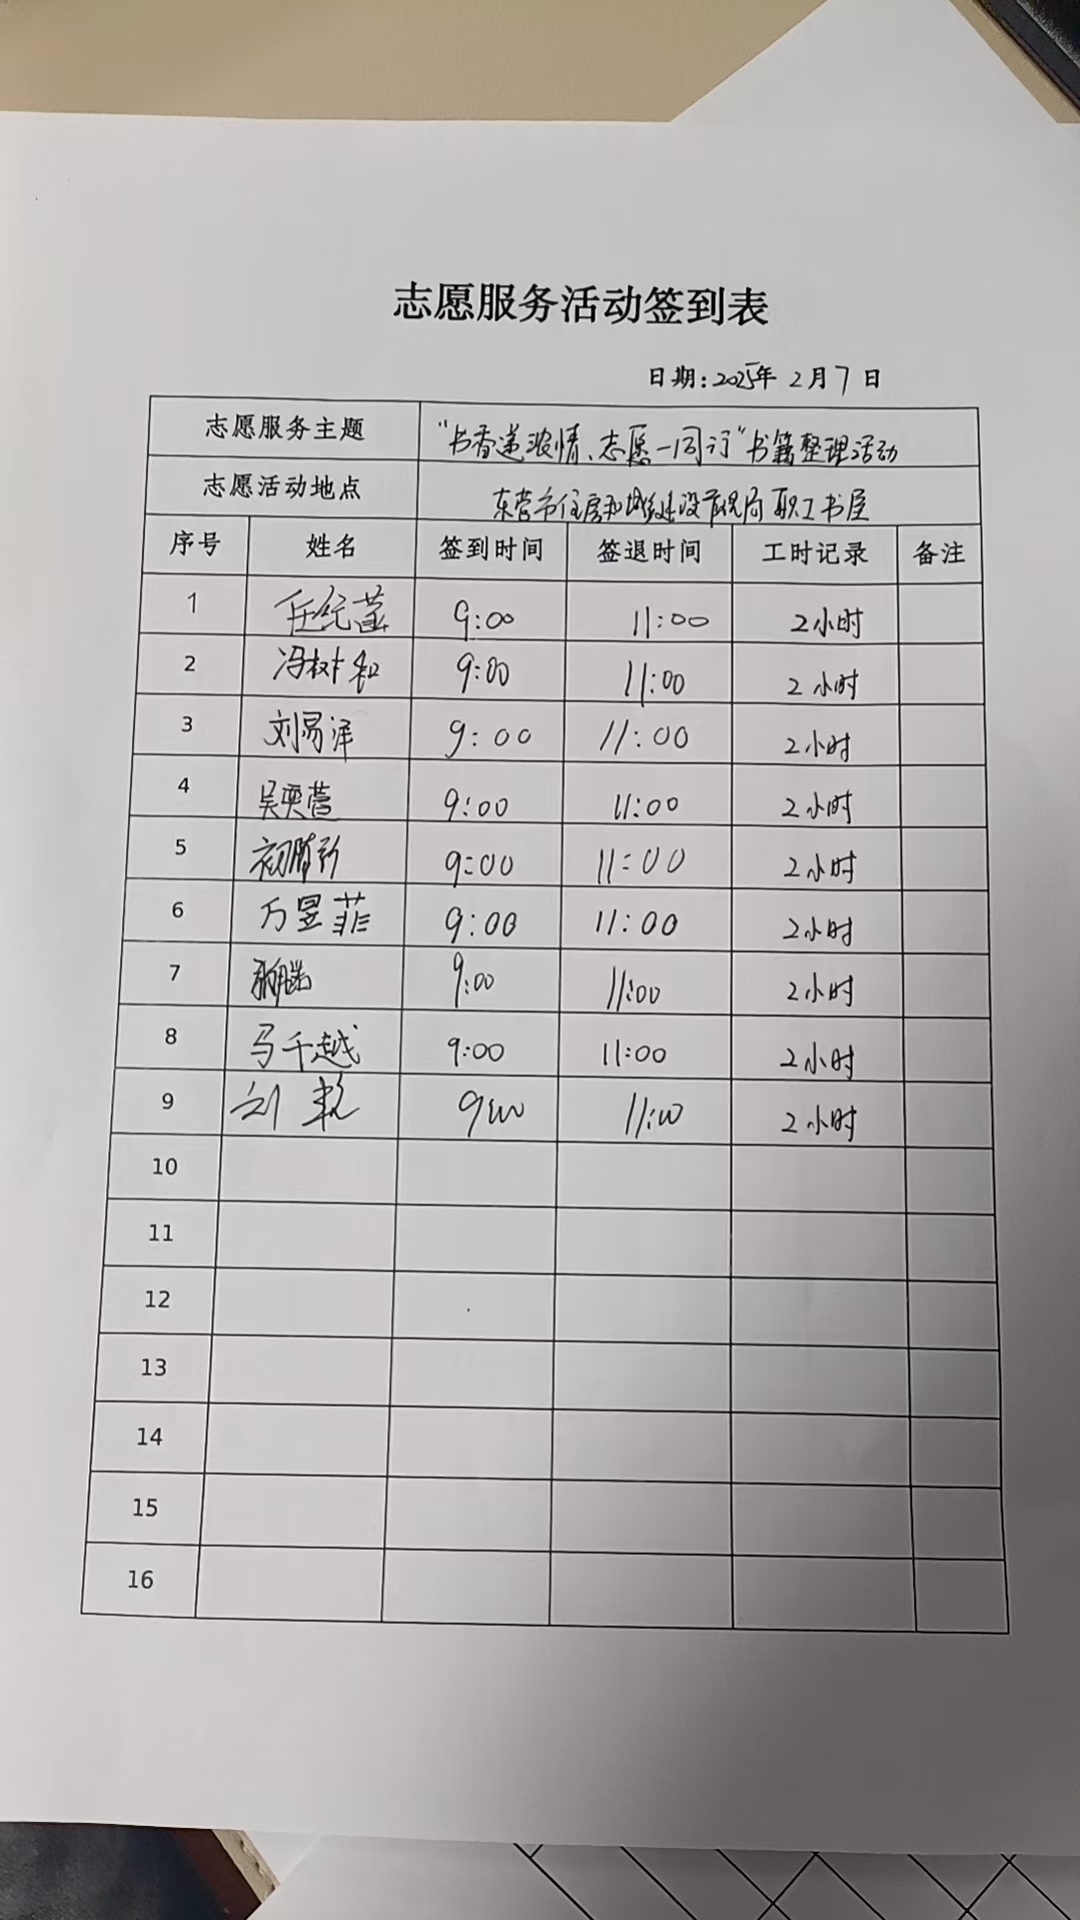 志愿服务活动签到表
日期:2025年 2月7日
志愿服务主题 "书香递浓情、志愿一同行"书籍整理活动
志愿活动地点 东营市住房和城乡建设管理局职工书屋
序号 姓名 签到时间 签退时间 工时记录 备注
1 任纪莹 9:00 11:00 2小时
2 冯树和 9:00 11:00 2小时
3 刘易泽 9:00 11:00 2小时
4 吴奕萱 9:00 11:00 2小时
5 9:00 11:00 2小时
6 万昱菲 9:00 11:00 2小时
7 9:00 11:00 2小时
8 马千越 9:00 11:00 2小时
9 刘 9:00 11:00 2小时
10
11
12
13
14
15
16